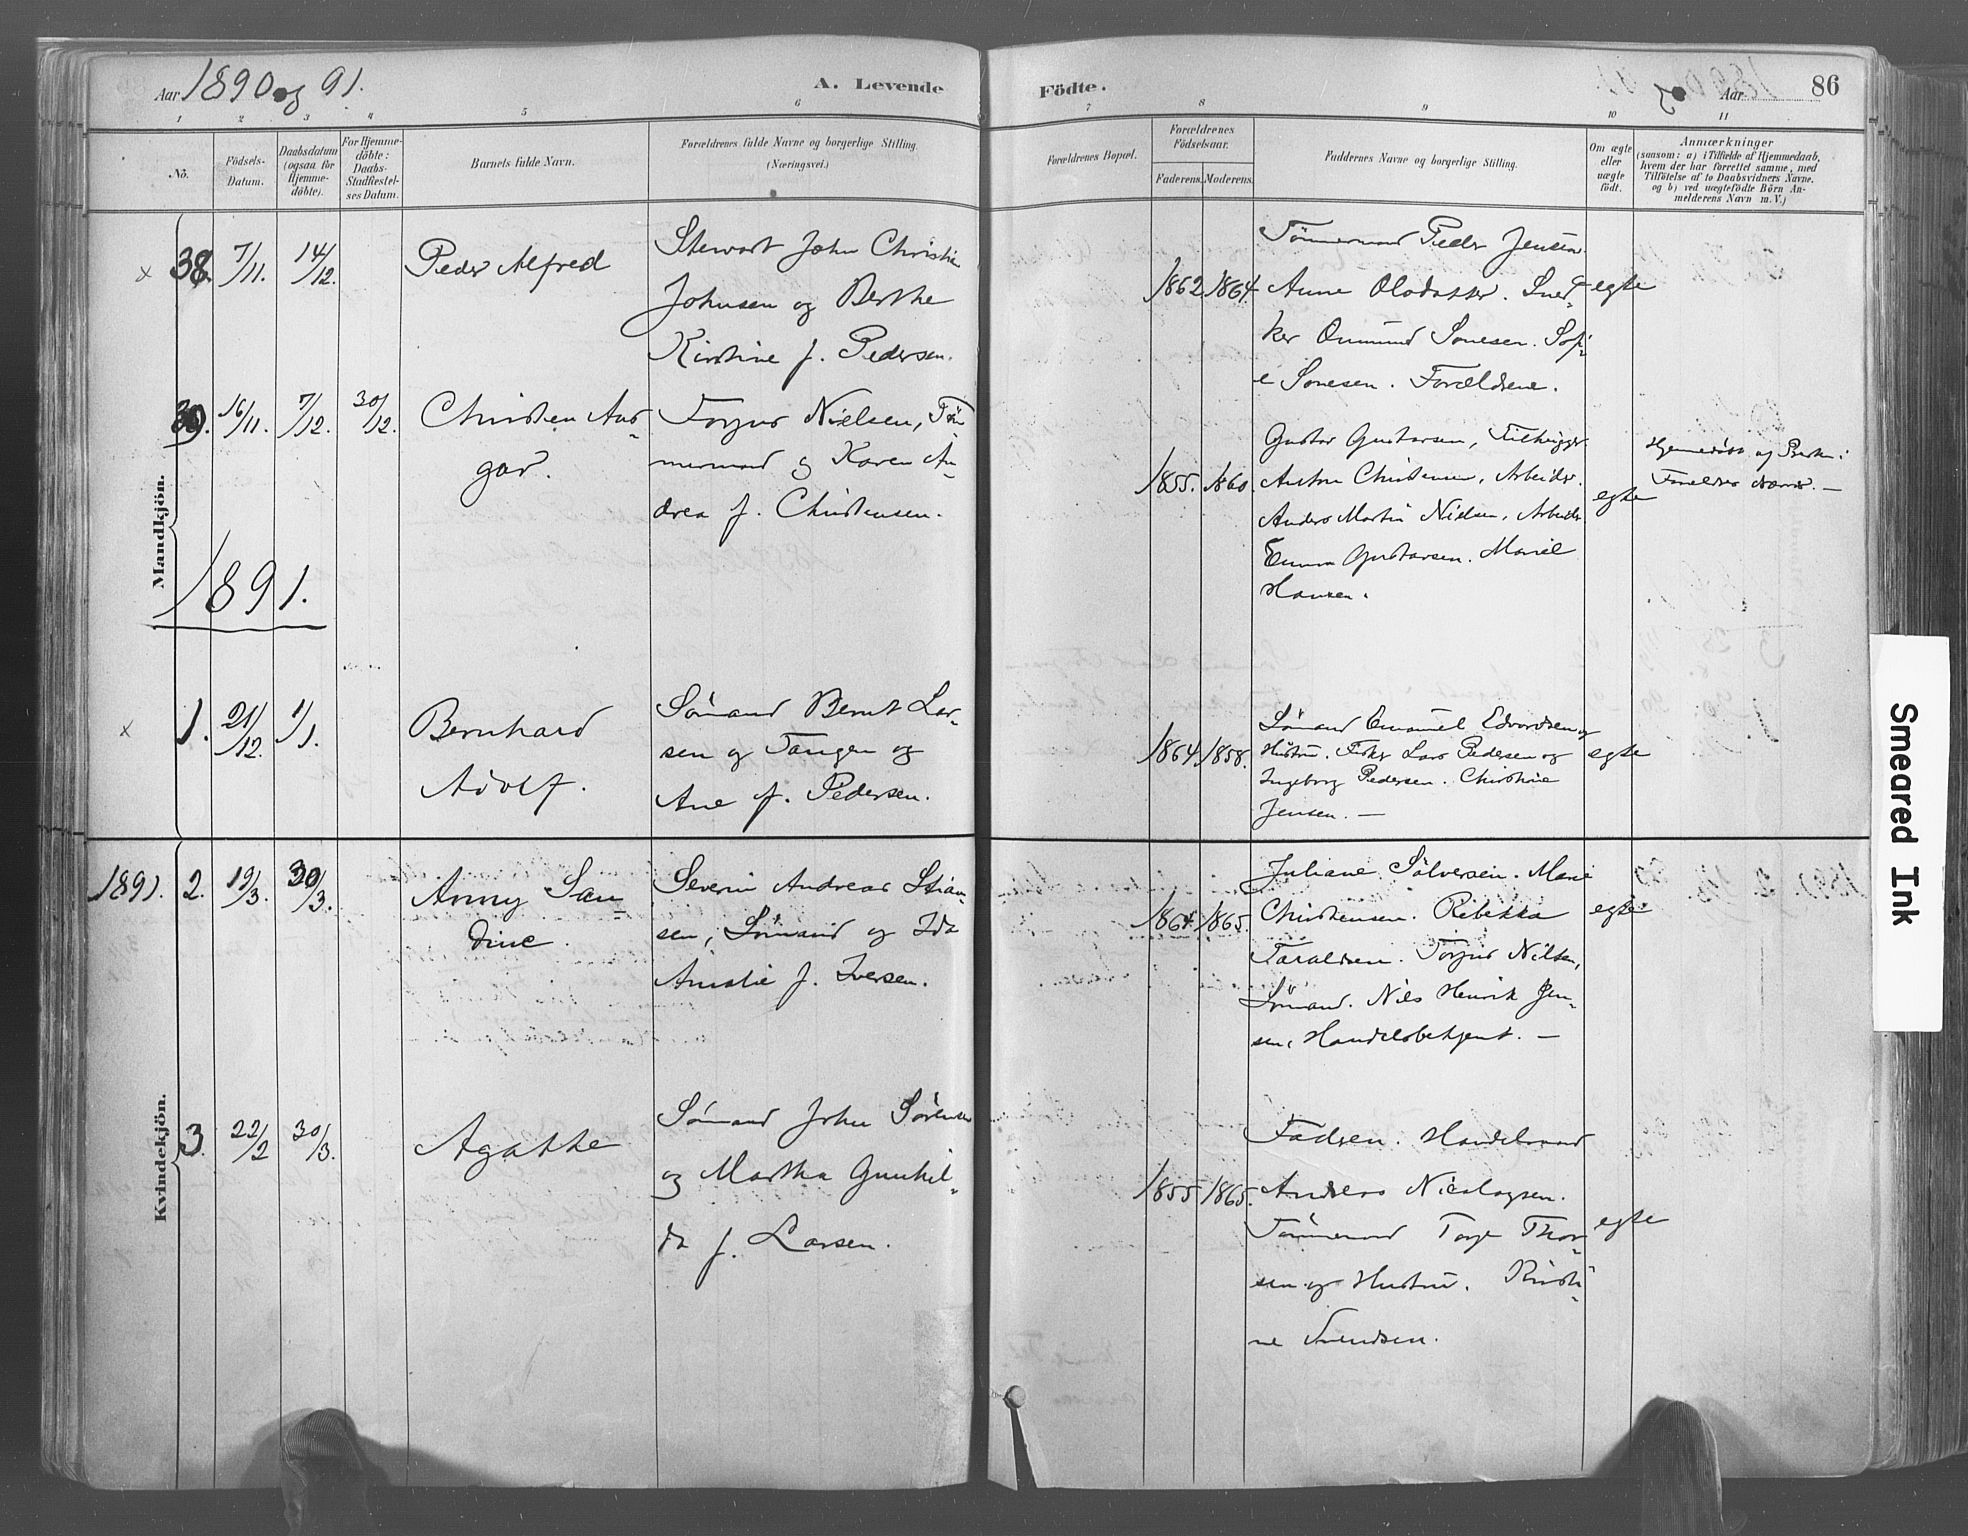 Aar 1890 og 91.
A. Levende
Födte.
Aar
86
1 2 3 4 5 6 7 8 9 10 11
No.
Födsels-Datum.
Daabsdatum (ogsaa for Hjemme-döbte).
For Hjemme-döbte: Daabs-Stadfæstel-ses Datum.
Barnets fulde Navn.
Forældrenes fulde Navne og borgerlige Stilling. (Næringsvei.)
Forældrenes Bopæl.
Forældrenes Födselsaar.
Faderens. Moderens.
Faddernes Navne og borgerlige Stilling.
Om ægte eller uægte födt.
Anmærkninger
(saasom: a) i Tilfælde af Hjemmedaab,
hvem der har forrettet samme, med
Tilföielse af to Daabsvidners Navne.
og b) ved uægtefödte Börn An-
melderens Navn m. V.)
Mandkjön.
x 38. 7/11. 14/12.
Peder Alfred
Stewart John Christian
Johnsen og Berthe
Kirstine f. Pedersen.
1862 1864
Tömmermand Peder Jensen
Anne Olsdatter. Sned-
ker Onmund Sonesen. Sofi-
e Sonesen. Forældrene.
egte
39. 16/11. 7/12. 30/12.
Christen Ans-
gar.
Torjus Nielsen, Töm-
mermand og Karen An-
drea f. Christensen.
1855. 1860.
Gustav Gustavsen,
Anton Christensen, Arbeider.
Anders Martin Nielsen, Arbeider
Emma Gustavsen. Mariel
Hansen.
egte
Hjemmedöbt af
1891.
x 1. 21/12. 1/1.
Bernhard
Adolf.
Sömand Bernt Lar-
sen og Tangen og
Ane f. Pedersen.
1864 1858.
Sömand Emanuel Edvardsen og
Hustru. Fisker Lars Pedersen og
Ingeborg Pedersen. Christine
Jensen. —
egte
Kvindekjön.
1891. 2. 19/3. 30/3.
Anny San-
dine.
Severin Andreas Stian-
sen, Sömand og Ida
Amalie f. Iversen.
1864 1865.
Juliane Sölversen. Marie
Christensen. Rebekka
Taraldsen. Torjus Nilsen,
Sömand. Niels Henrik Jen-
sen, Handelsbetjent. —
egte
3. 22/2 30/3.
Agathe
Sömand John Sörensen
og Martha Gunhil-
da f. Larsen.
1855 1865.
Fadren. Handelsmand
Anders Nicolaysen.
Tömmermand Torje Thor-
sen og Hustru. Kirsti-
ne Svendsen.
egte
Smeared Ink